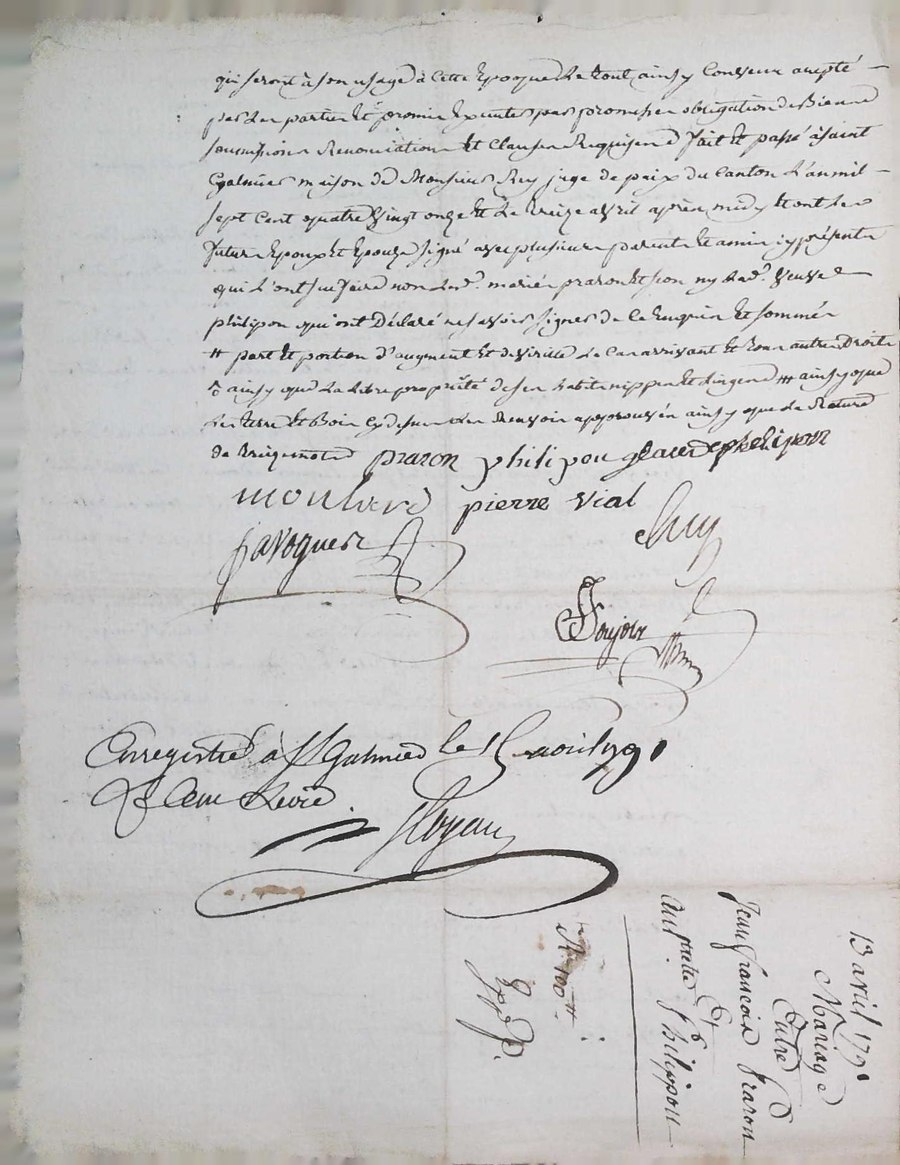 qui seront à son usage à cette Epoque Le tout ainsy Convenu acepté
par Les parties Et promis Executer par promesse obligation de Biens
soumissions Renonciations Et Clauses Requises fait Et passé à saint
Galmier maison de Monsieur Rey juge de paix du Canton L'an mil
sept Cent quatre Vingt onze Et Le treize avril après midy Et ont Les
futurs Epoux Et Epouse signé avec plusieurs parents Et amis yprésents
qui L'ont su faire non Led. mariés praron Et son ny Lad. Veuve
philipon qui ont Déclaré ne savoir signer de ce Enquis Et sommés
# part Et portion d'augment Et de Virile Le Cas arrivant Et tous autres Droits
ainsy que La Libre propriété de ses habits nippes Et Linges # ainsy que
Les terre Et Bois cy dessus Les Renvois approuvés ainsy que La Rature
de mots
praron philipon glaude phelipon
moulard pierre vial
favoguer Rey
Poujour
Enregistré à St Galmier le 15 avril 1791
Reçu
13 avril 1791
Mariage
Entre
Jean françois Praron
Et
philippon
100#
Expp.